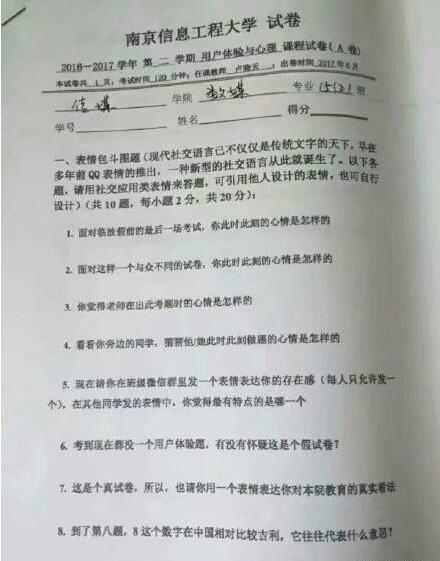 南京信息工程大学 试卷
2016—2017学年 第 二 学期 用户体验与心理 课程试卷( A 卷)
本试卷共 1 页；考试时间 120 分钟；任课教师 卢晓天 ；出卷时间 2017 年 6 月
传媒 学院 数媒 专业 1521 班
学号 姓名 得分
一、表情包斗图题（现代社交语言已不仅仅是传统文字的天下，早在
多年前QQ表情的推出，一种新型的社交语言从此就诞生了。以下各
题，请用社交应用类表情来答题，可引用他人设计的表情，也可自行
设计）（共 10 题，每小题 2 分，共 20 分）：
1. 面对临放假前的最后一场考试，你此时此刻的心情是怎样的
2. 面对这样一个与众不同的试卷，你此时此刻的心情是怎样的
3. 你觉得老师在出此考题时的心情是怎样的
4. 看看你旁边的同学，猜猜他/她此时此刻做题的心情是怎样的
5. 现在请你在班级微信群里发一个表情表达你的存在感（每人只允许发一
个），在其他同学发的表情中，你觉得最有特点的是哪一个
6. 考到现在都没一个用户体验题，有没有怀疑这是个假试卷？
7. 这是个真试卷，所以，也请你用一个表情表达你对本院教育的真实看法
8. 到了第八题，8 这个数字在中国相对比较吉利，它往往代表什么意思？